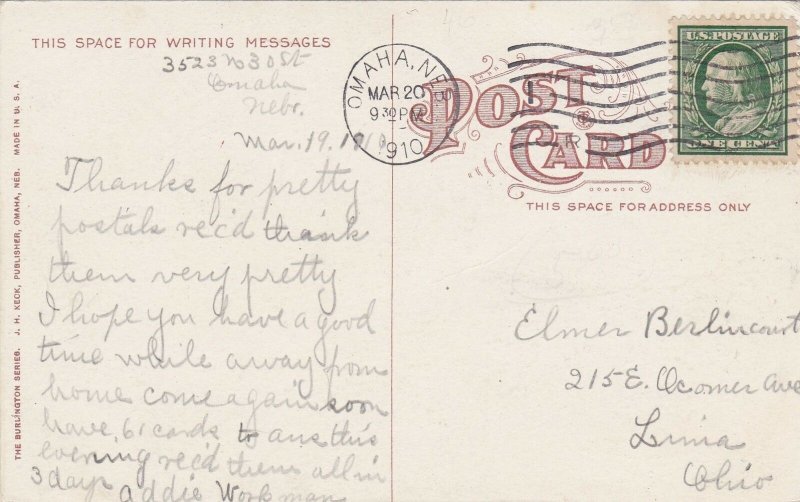 THIS SPACE FOR WRITING MESSAGES
3523 N 30 St
Omaha
Nebr.
Mar. 19. 1910
Thanks for pretty
postals rec'd think
them very pretty
I hope you have a good
time while away from
home come again soon
have 61 cards to ans this
evening rec'd them all in
3 days Addie Workman
THE BURLINGTON SERIES. J. H. KECK, PUBLISHER, OMAHA, NEB. MADE IN U. S. A.
OMAHA, NEB.
MAR 20
9 30 PM
1910
POST
CARD
U.S. POSTAGE
ONE CENT
THIS SPACE FOR ADDRESS ONLY
Elmer Berlincourt
215 E. Ocomer Ave
Lima
Ohio